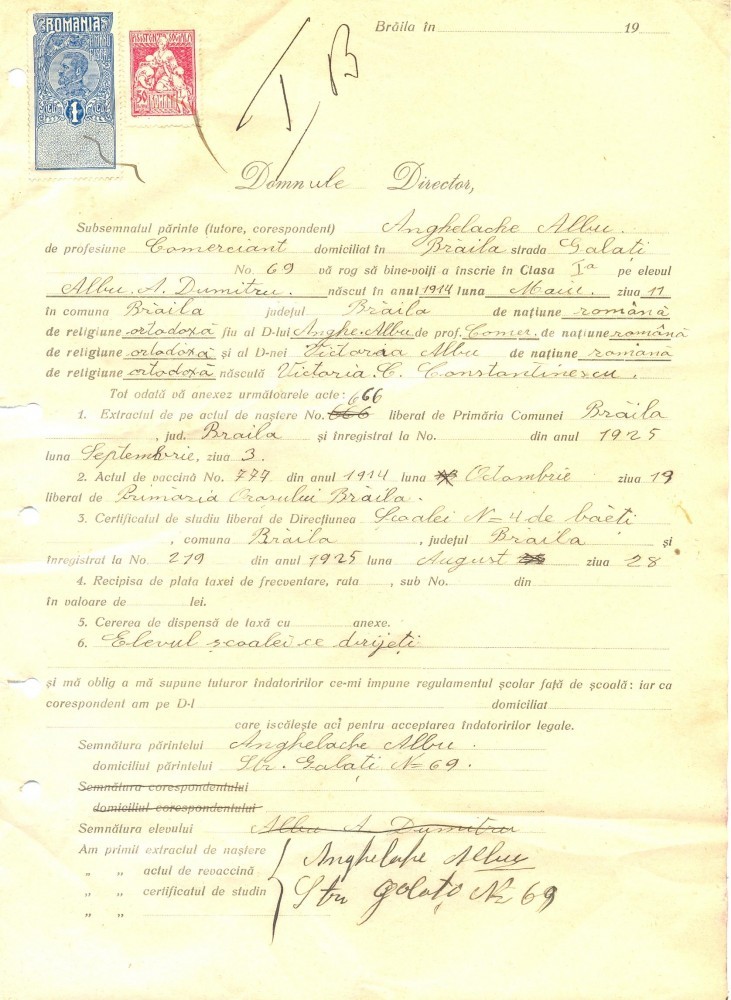 ROMANIA
TIMBRU FISCAL
1
ASISTENȚA SOCIALA
50
ROMANIA
Brăila în 19
I B
Domnule Director,
Subsemnatul părinte (tutore, corespondent) Anghelache Albu.
de profesiune Comerciant domiciliat în Brăila strada Galați
No. 69 vă rog să bine-voiți a înscrie în Clasa Iª pe elevul
Albu. A. Dumitru. născut în anul 1914 luna Maiu. ziua 11
în comuna Brăila județul Brăila de națiune română
de religiune ortodoxă fiu al D-lui Anghe. Albu de prof. Comer. de națiune română
de religiune ortodoxă și al D-nei Victoria Albu de națiune română
de religiune ortodoxă născulă Victoria. C. Constantinescu.
Tot odată vă anexez următoarele acte: 666
1. Extractul de pe actul de naștere No. 666 liberat de Primăria Comunei Brăila
, jud. Braila și înregistrat la No. din anul 1925
luna Septembrie, ziua 3.
2. Actul de vaccină No. 777 din anul 1914 luna Octombrie ziua 19
liberat de Primăria Orașului Brăila.
3. Certificatul de studiu liberat de Direcțiunea Școalei N= 4 de baeți
, comuna Brăila , județul Brăila și
înregistrat la No. 219 din anul 1925 luna August ziua 28
4. Recipisa de plata taxei de frecventare, rata , sub No. din
în valoare de lei.
5. Cererea de dispensă de taxă cu anexe.
6. Elevul școalei ce dirijeți
și mă oblig a mă supune tuturor îndatoririlor ce-mi impune regulamentul școlar față de școală: iar ca
corespondent am pe D-l domiciliat
care iscălește aci pentru acceptarea îndatoririlor legale.
Semnătura părintelui Anghelache Albu.
domiciliul părintelui Str. Galați N= 69.
Semnătura corespondentului
domiciliul corespondentului
Semnătura elevului Albu A Dumitru
Am primit extractul de naștere Anghelache Albu
„ „ actul de revaccină
„ „ certificatul de studin Str Galați No 69
„ „